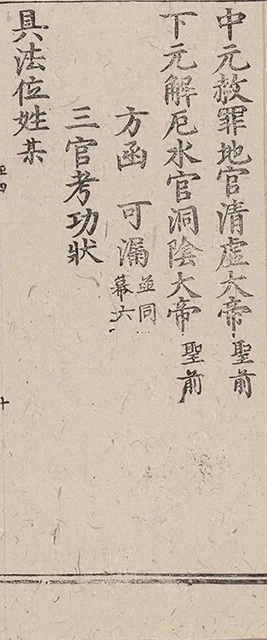 中元赦罪地官清虛大帝聖前
下元解厄水官洞陰大帝聖前
方函 可漏並同幕六
三官考功狀
具法位姓某
十